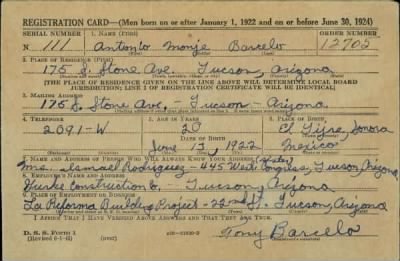 REGISTRATION CARD—(Men born on or after January 1, 1922 and on or before June 30, 1924)
SERIAL NUMBER 1. NAME (Print) ORDER NUMBER
N 111 Antonio Monje Barcelo 12702
2. PLACE OF RESIDENCE (Print)
175 S. Stone Ave. Tucson, Arizona
(THE PLACE OF RESIDENCE GIVEN ON THE LINE ABOVE WILL DETERMINE LOCAL BOARD
JURISDICTION; LINE 2 OF REGISTRATION CERTIFICATE WILL BE IDENTICAL)
3. MAILING ADDRESS
175 S. Stone Ave. - Tucson - Arizona
4. TELEPHONE 5. AGE IN YEARS 6. PLACE OF BIRTH
2091-W 20 El Tigre, Sonora
DATE OF BIRTH
June 13, 1922 Mexico
7. NAME AND ADDRESS OF PERSON WHO WILL ALWAYS KNOW YOUR ADDRESS (sister)
Mrs. Ismael Rodriguez - 445 West Congress, Tucson, Arizona
8. EMPLOYER'S NAME AND ADDRESS
Construction Co. - Tucson, Arizona
9. PLACE OF EMPLOYMENT OR BUSINESS
La Reforma Building Project - 22nd St. Tucson, Arizona
I AFFIRM THAT I HAVE VERIFIED ABOVE ANSWERS AND THAT THEY ARE TRUE.
D. S. S. Form 1
(Revised 6-1-42) (over) Tony Barcelo